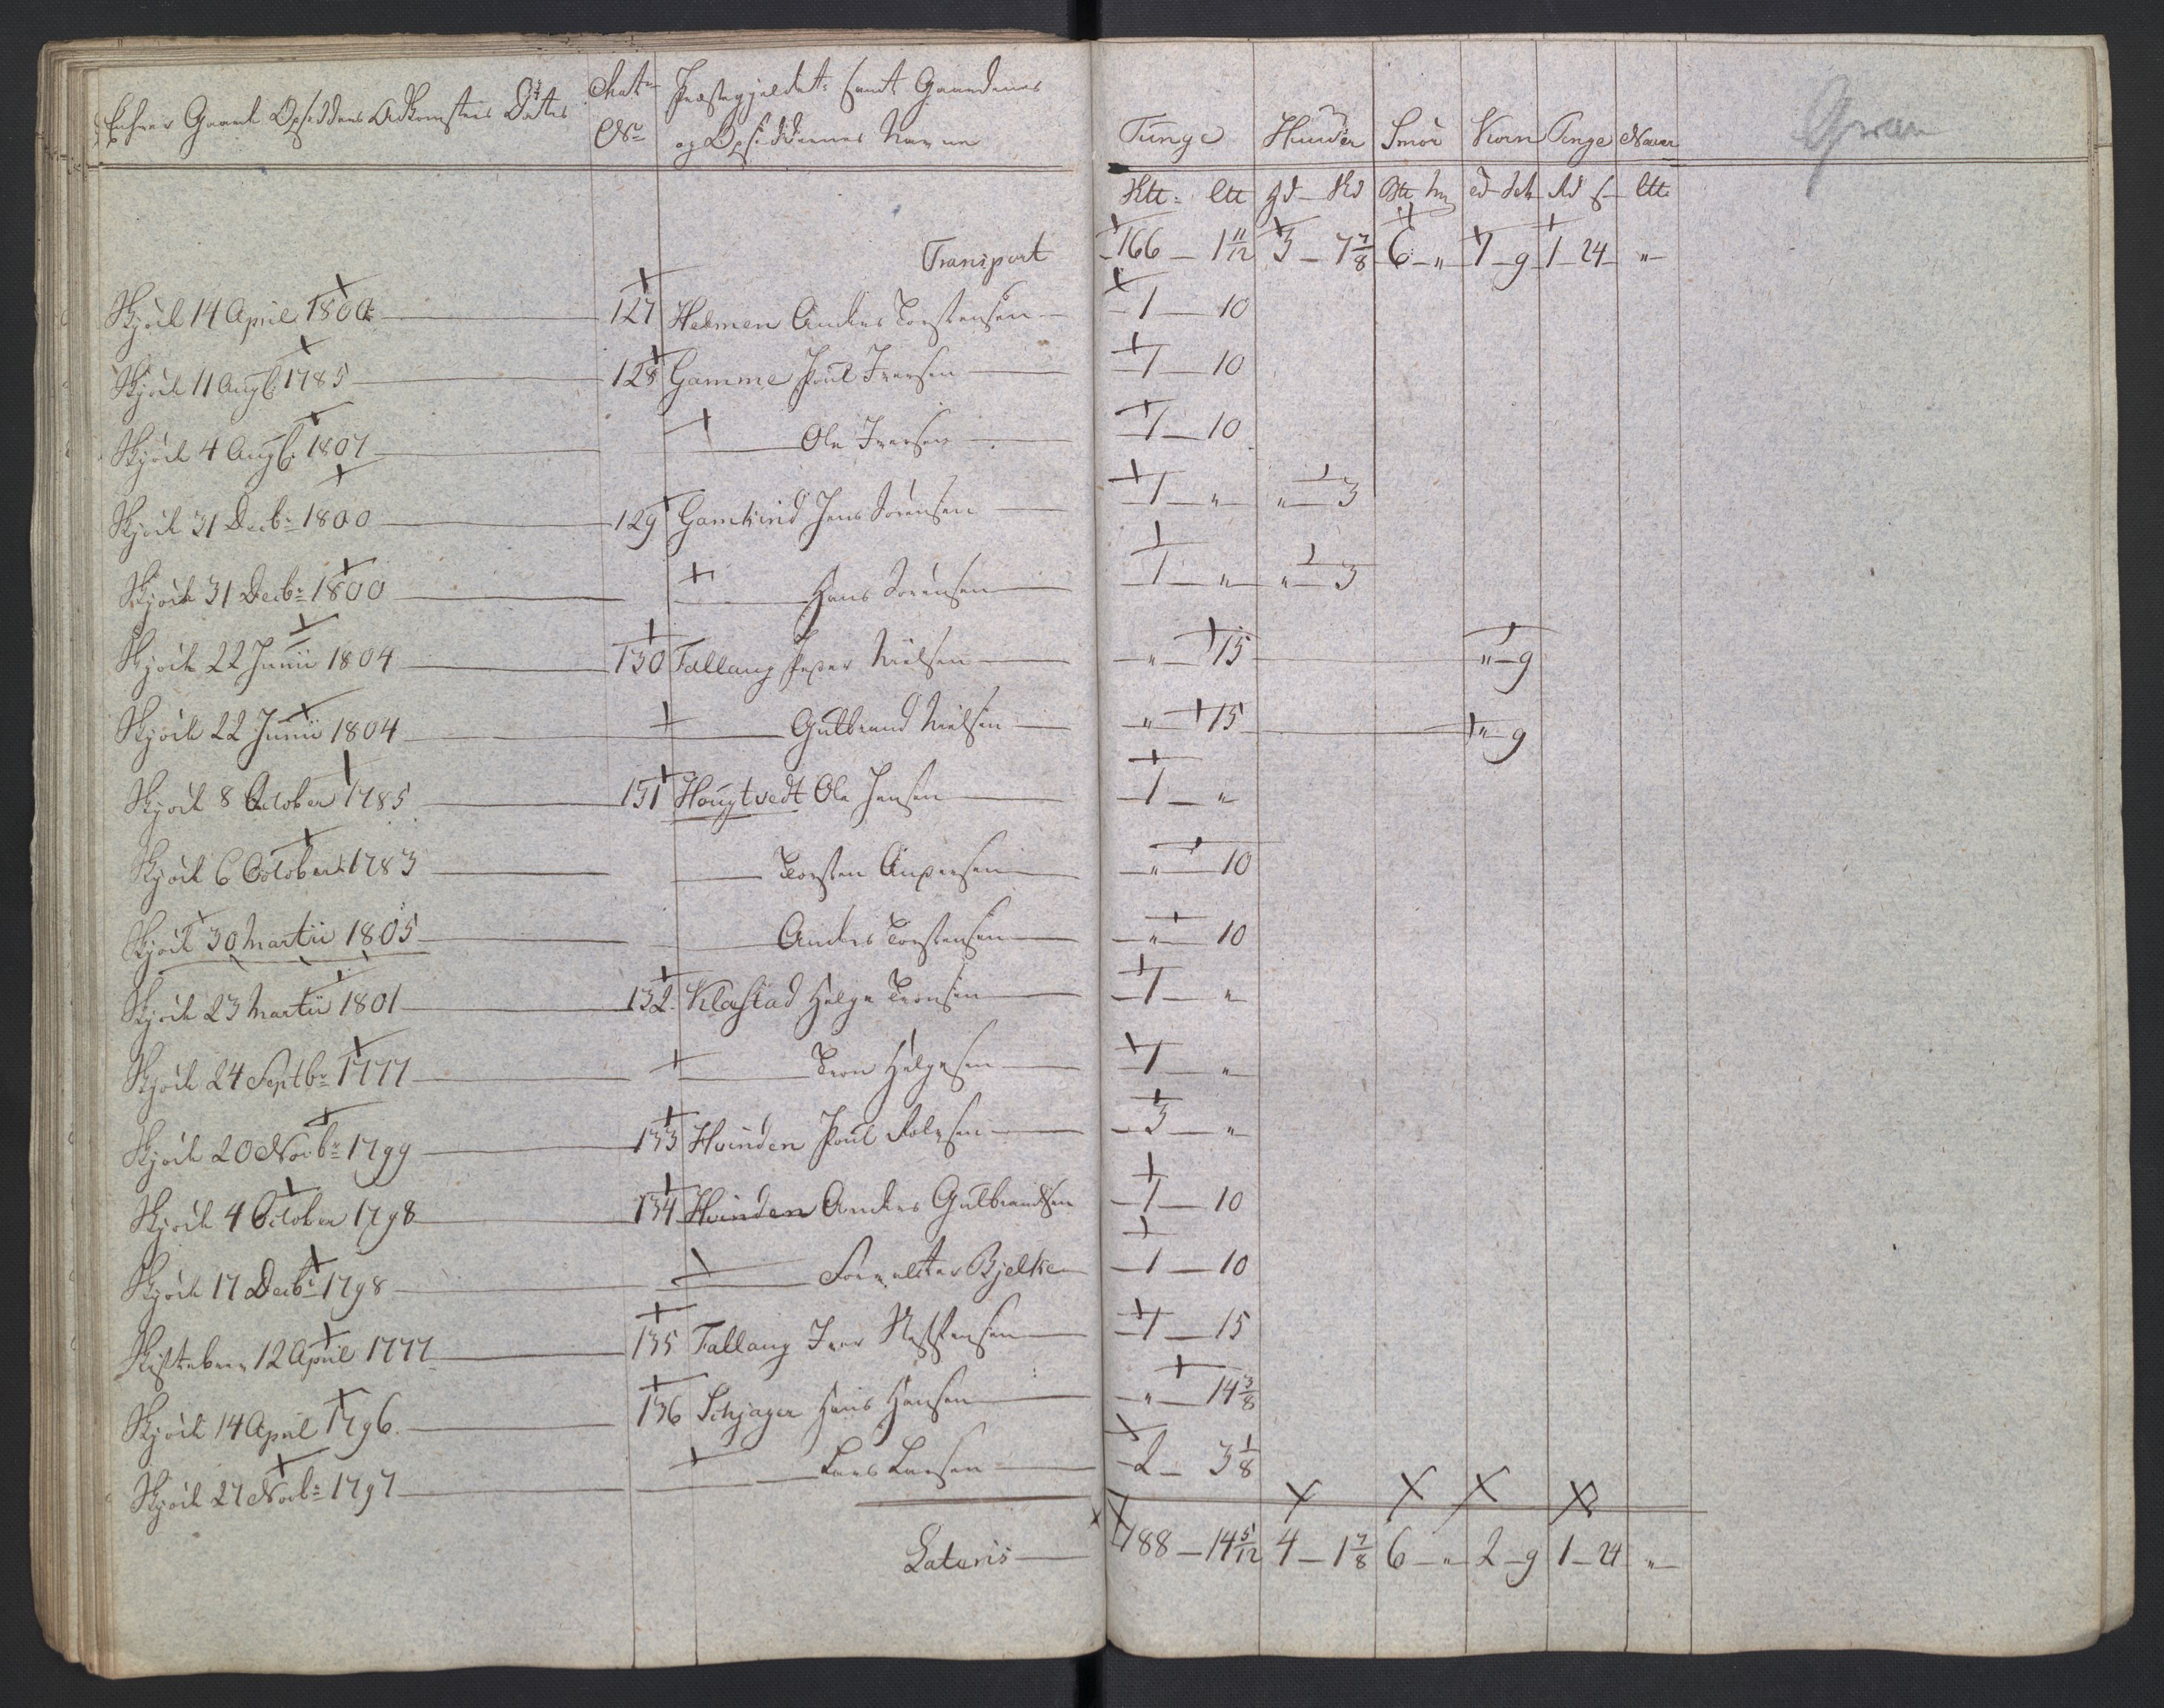 Enhver Gaard Opsidders Adkomsters Datis | Matr No | Præstegjeldets samt Gaardenes og Opsiddernes Navne | Tunge | Huuder | Smör | Korn | Penge | Naver | Gran
Htt: Ltt | gd Skd | Btt | Rd s | Ltt
Transport | 166 – 1 11/12 | 3 – 7 7/8 | 6 – " | 1 – 9 | 1 – 24 | "
Skjöde 14 April 1800 | 127 | Helmen Anders Torstensen | 1 – 10
Skjöde 11 Augs: 1785 | 128 | Gamme Poul Iversen | 1 – 10
Skjöde 4 Augs: 1807 | Ole Iversen | 1 – 10
Skjöde 31 Decbr 1800 | 129 | Gamkind Jens Sörensen | 1 – " | " – 3
Skjöde 31 Decbr 1800 | Hans Sörensen | 1 – " | " – 3
Skjöde 22 Junii 1804 | 130 | Fallang Peder Nielsen | " – 15 | " – 9
Skjöde 22 Junii 1804 | Gulbrand Nielsen | " – 15 | " – 9
Skjöde 8 October 1785 | 131 | Hougtvedt Ole Jensen | 1 – "
Skjöde 6 October 1783 | Torsten Andersen | " – 10
Skjöde 30 Martii 1805 | Anders Torstensen | " – 10
Skjöde 23 Martii 1801 | 132 | Klæstad Helge Tronsen | 1 – "
Skjöde 24 Septbr 1777 | Tron Helgesen | 1 – "
Skjöde 20 Novbr 1799 | 133 | Hvinden Poul Rolvsen | 3 – "
Skjöde 4 October 1798 | 134 | Hvinden Anders Gulbrandsen | 1 – 10
Skjöde 17 Decbr 1798 | Forvalter Bjelke | 1 – 10
Skiftebrev 12 April 1777 | 135 | Fallang Iver | 1 – 15
Skjöde 14 April 1796 | 136 | Schjager Hans Hansen | " – 14 3/8
Skjöde 27 Novbr 1797 | Lars Larsen | 2 – 3 1/8
Lateris | 188 – 14 5/12 | 4 – 1 7/8 | 6 – " | 2 – 9 | 1 – 24 | "